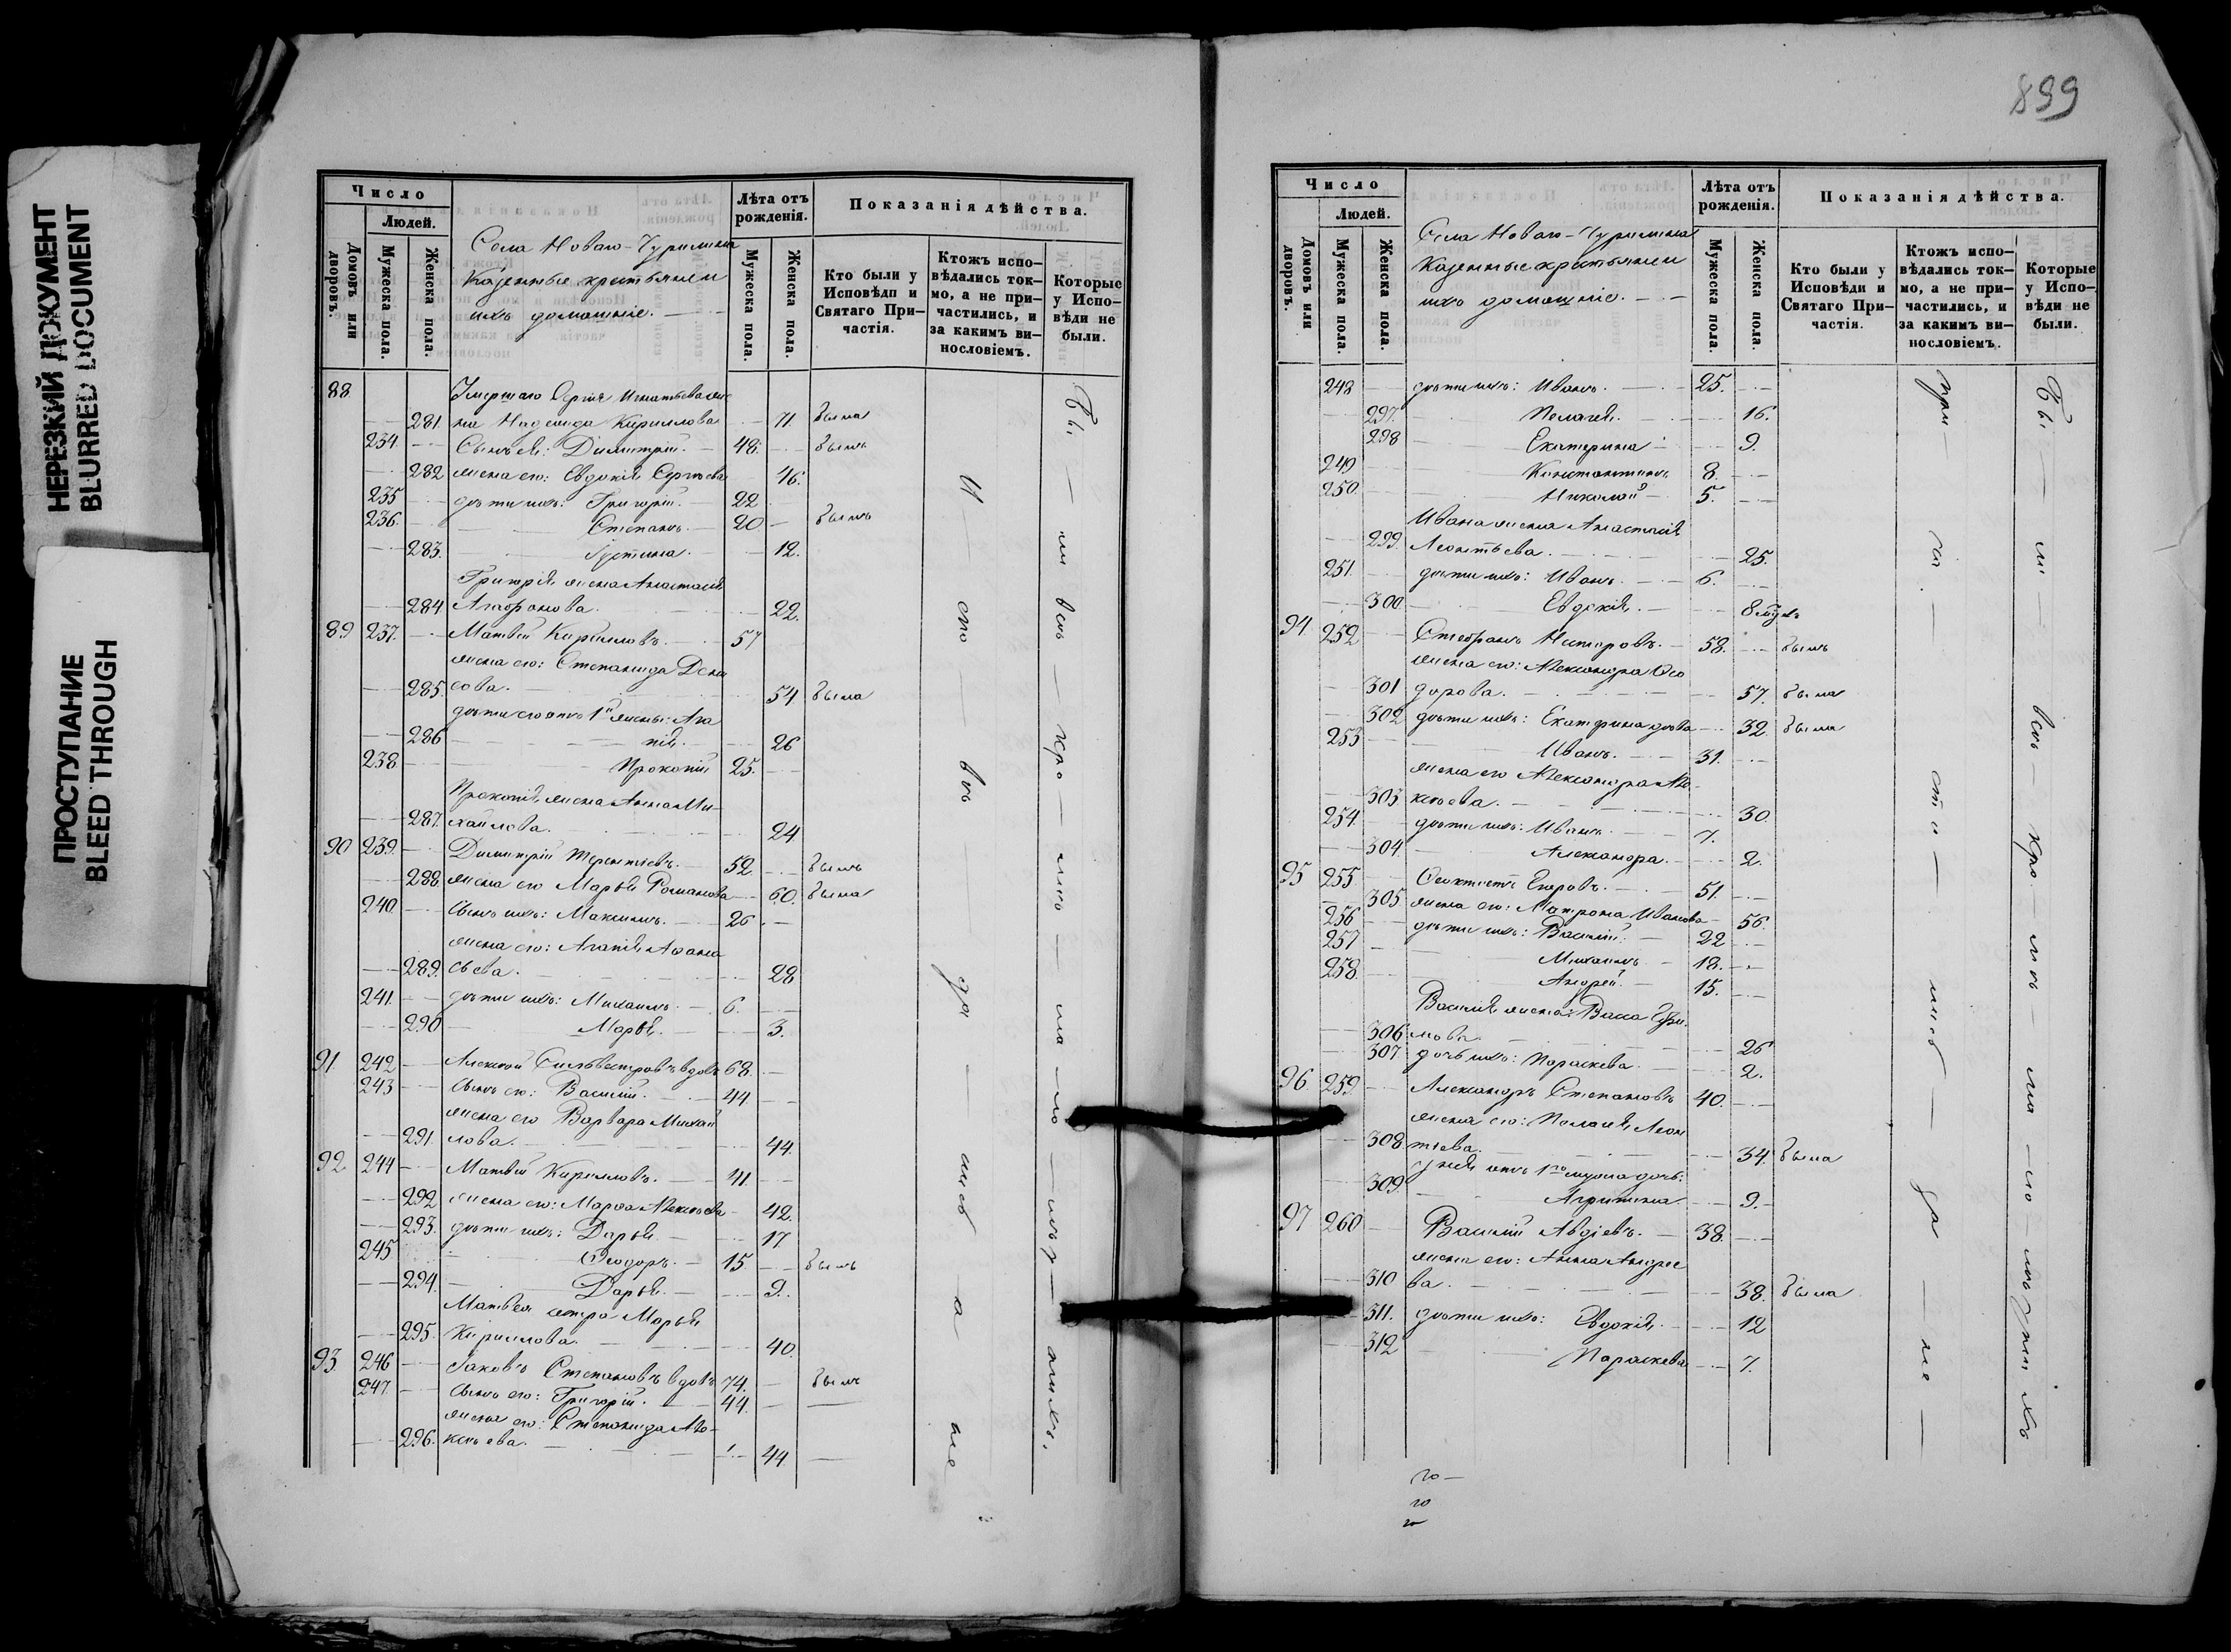 НЕРЕЗКИЙ ДОКУМЕНТ
BLURRED DOCUMENT
ПРОСТУПАНИЕ
BLEED THROUGH
Число
Людей.
Домовъ или дворовъ.
Мужеска пола.
Женска пола.
Села Новаго-
Казенные крестьяне и
ихъ домашніе.
Лѣта отъ рожденія.
Мужеска пола.
Женска пола.
Показанія дѣйства.
Кто были у Исповѣди и Святаго Причастія.
Ктожъ исповѣдались токмо, а не причастились, и за какимъ винословіемъ.
Которые у Исповѣди не были.
88 Умершаго Сергія Игнатьева же
281 на Надежда Кириллова 71 была
234 Сынъ ея: Димитрій. 48. былъ
282 жена его: Евдокія Сергѣева 46.
235 дѣти ихъ: Григорій. 22
236. Степанъ. 20 былъ
283. Іустина. 12.
Григорія жена Анастасія
284 Агафонова. 22.
89 237. Матвѣй Кирилловъ. 57
жена его: Степанида Дени
285. сова. 54 была
дѣти его отъ 1й жены: Ага
286 пія. 26
238 Прокопій 25.
Прокопія жена Анна Ми-
287. хайлова. 24
90 239. Димитрій Терентіевъ. 52. былъ
288 жена его Марья Романова 60. была
240. Сынъ ихъ: Максимъ. 26
жена его: Агапія Афана
289. сьева. 28
241. дѣти ихъ: Михаилъ. 6.
290 Марья. 3.
91 242 Алексѣй Сильвестровъ вдовъ 68.
243 Сынъ его: Василій. 44
жена его Варвара Михай
291. лова. 44.
92 244 Матвѣй Кирилловъ. 41.
292 жена его: Марѳа Алексѣева 42.
293. дѣти ихъ: Дарья. 17
245 Ѳеодоръ. 15 былъ
294. Дарья. 9.
Матвея сестра Марья
295. Кириллова. 40.
93 246 Іаковъ Степановъ вдовъ 74. былъ
247 Сынъ его: Григорій. 44. —
жена его: Степанида Але-
296. ксѣева. 44 —
899
Число
Людей.
Домовъ или дворовъ.
Мужеска пола.
Женска пола.
Села Новаго-
Казенные крестьяне и
ихъ домашніе.
Лѣта отъ рожденія.
Мужеска пола.
Женска пола.
Показанія дѣйства.
Кто были у Исповѣди и Святаго Причастія.
Ктожъ исповѣдались токмо, а не причастились, и за какимъ винословіемъ.
Которые у Исповѣди не были.
248 дѣти ихъ: Иванъ. 25.
297. Пелагея. 16.
298 Екатерина 9.
249 Константинъ 8.
250. Николай 5.
Ивана жена Анастасія
299. Леонтьева. 25.
251. дѣти ихъ: Иванъ. 6.
300. Евдокія. 8
94. 252 Стефанъ 58. былъ
жена его: Александра Ѳео
301 дорова. 57. была
302 дѣти ихъ: Екатерина 32. была
253 Иванъ. 31.
жена его Александра Але-
303 ксѣева. 30.
254. дѣти ихъ: Иванъ. 7.
304. Александра. 2.
95 255 Ѳеоктистъ Егоровъ. 51.
305 жена его: Матрона Иванова 56.
256 дѣти ихъ: Василій. 22
257 Михаилъ 18.
258 Андрей. 15.
Василія жена: Васса Ефи-
306 мова. 26
307. дочь ихъ: Параскева. 2.
96. 259 Александръ Степановъ 40.
жена его: Пелагея Леон
308 тіева. 34. была
у нея отъ 1го мужа дочь:
309. Агрипина 9.
97 260 Василій Авдіевъ. 38.
жена его: Анна Андрее
310 ва. 38. была
311. дѣти ихъ: Евдокія. 12
312 Параскева 7.